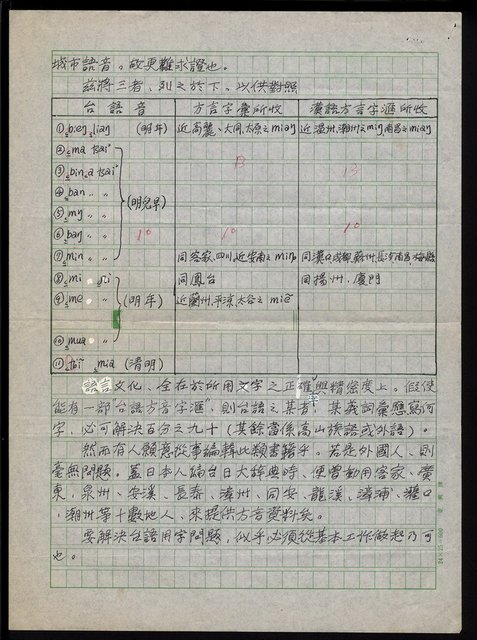 城市語音。故更難求證也。
茲將三者、列之於下、以供對照
台語音 方言字彙所收 漢語方言字滙所收
① bieŋ liaŋ (明年) 近高麗、大同、太原之miəŋ 近漳州、潮州之miŋ, 南昌之miaŋ
② ma tsai
③ bin a tsai B 13
④ ban 〃 〃 (明兒早)
⑤ mŋ 〃 〃
⑥ baŋ 〃 〃 10 10 10
⑦ min 〃 〃 同客家、四川、近安南之miŋ 同漢口、成都、蘇州、長沙、南昌、梅縣
⑧ mi 同鳳台 同揚州、廈門
⑨ me 〃 (明年) 近蘭州、平涼、太谷之miě
⑩ mua 〃
⑪ mia (清明)
語言文化、全在於所用文字之正確與精密度上。假使
字
能有一部「台語方音字滙」、則台語之某音、其義詞彙應寫何
字、必可解決百分之九十(其餘當係高山族語或外語)。
然而有人願意從事編輯此類書籍乎。若是外國人、則
毫無問題。蓋日本人編台日大辞典時、便曾動用客家、廣
東、泉州、安溪、長泰、漳州、同安、龍溪、漳浦、灌口
、潮州等十數地人、來提供方音資料矣。
要解決台語用字問題、似乎必須從基本工作做起乃可
也。
24×25=600